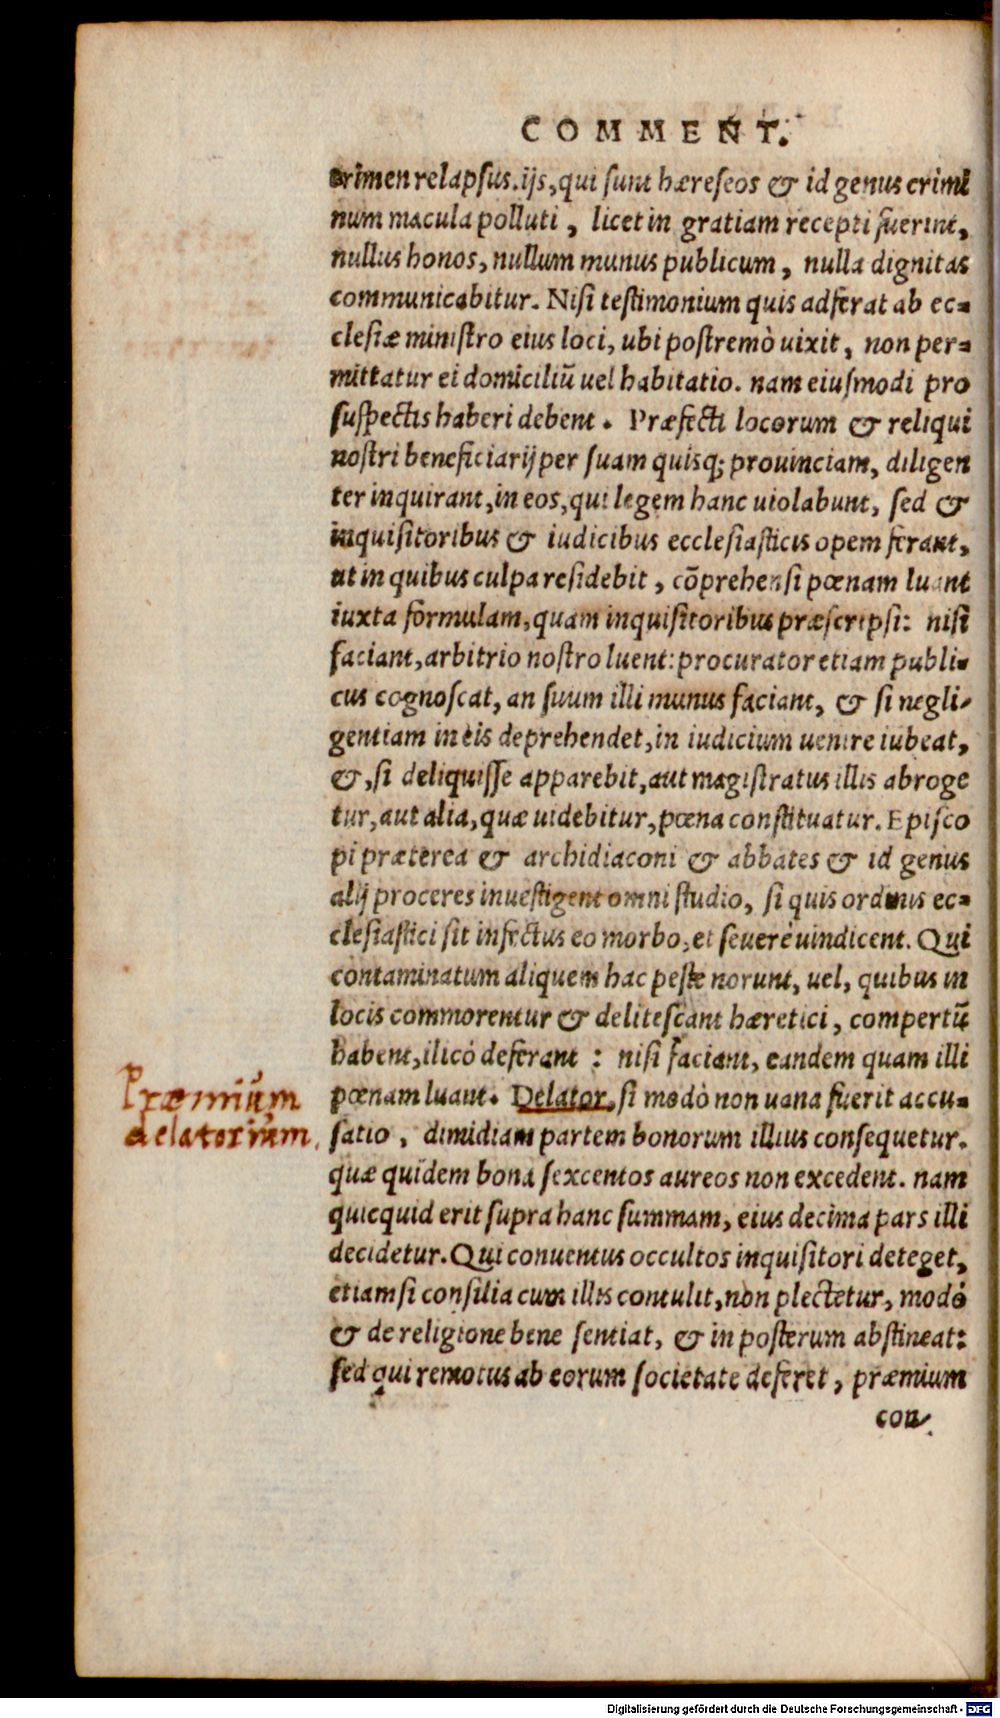 COMMENT.
crimen relapsus. ijs, qui sunt hæreseos & id genus crimi
num macula polluti, licet in gratiam recepti fuerint,
nullus honos, nullum munus publicum, nulla dignitas
communicabitur. Nisi testimonium quis adferat ab ec-
clesiæ ministro eius loci, ubi postremò uixit, non per-
mittatur ei domiciliũ uel habitatio. nam eiusmodi pro
suspectis haberi debent. Præfecti locorum & reliqui
nostri beneficiarij per suam quisq; prouinciam, diligen
ter inquirant, in eos, qui legem hanc uiolabunt, sed &
inquisitoribus & iudicibus ecclesiasticis opem ferant,
ut in quibus culpa residebit, cõprehensi pœnam luant
iuxta formulam, quam inquisitoribus præscripsi: nisi
faciant, arbitrio nostro luent: procurator etiam publi-
cus cognoscat, an suum illi munus faciant, & si negli-
gentiam in eis deprehendet, in iudicium uenire iubeat,
&, si deliquisse apparebit, aut magistratus illis abroge
tur, aut alia, quæ uidebitur, pœna constituatur. Episco
pi præterea & archidiaconi & abbates & id genus
alij proceres inuestigent omni studio, si quis ordinis ec-
clesiastici sit infectus eo morbo, et seuerè uindicent. Qui
contaminatum aliquem hac peste norunt, uel, quibus in
locis commorentur & delitescant hæretici, compertũ
habent, ilicò deferant: nisi faciant, eandem quam illi
Præmium
delatorum.
pœnam luant. Delator, si modò non uana fuerit accu-
satio, dimidiam partem bonorum illius consequetur.
quæ quidem bona sexcentos aureos non excedent. nam
quicquid erit supra hanc summam, eius decima pars illi
decidetur. Qui conuentus occultos inquisitori deteget,
etiam si consilia cum illis contulit, non plectetur, modò
& de religione bene sentiat, & in posterum abstineat:
sed qui remotus ab eorum societate deferet, præmium
con-
Digitalisierung gefördert durch die Deutsche Forschungsgemeinschaft - DFG